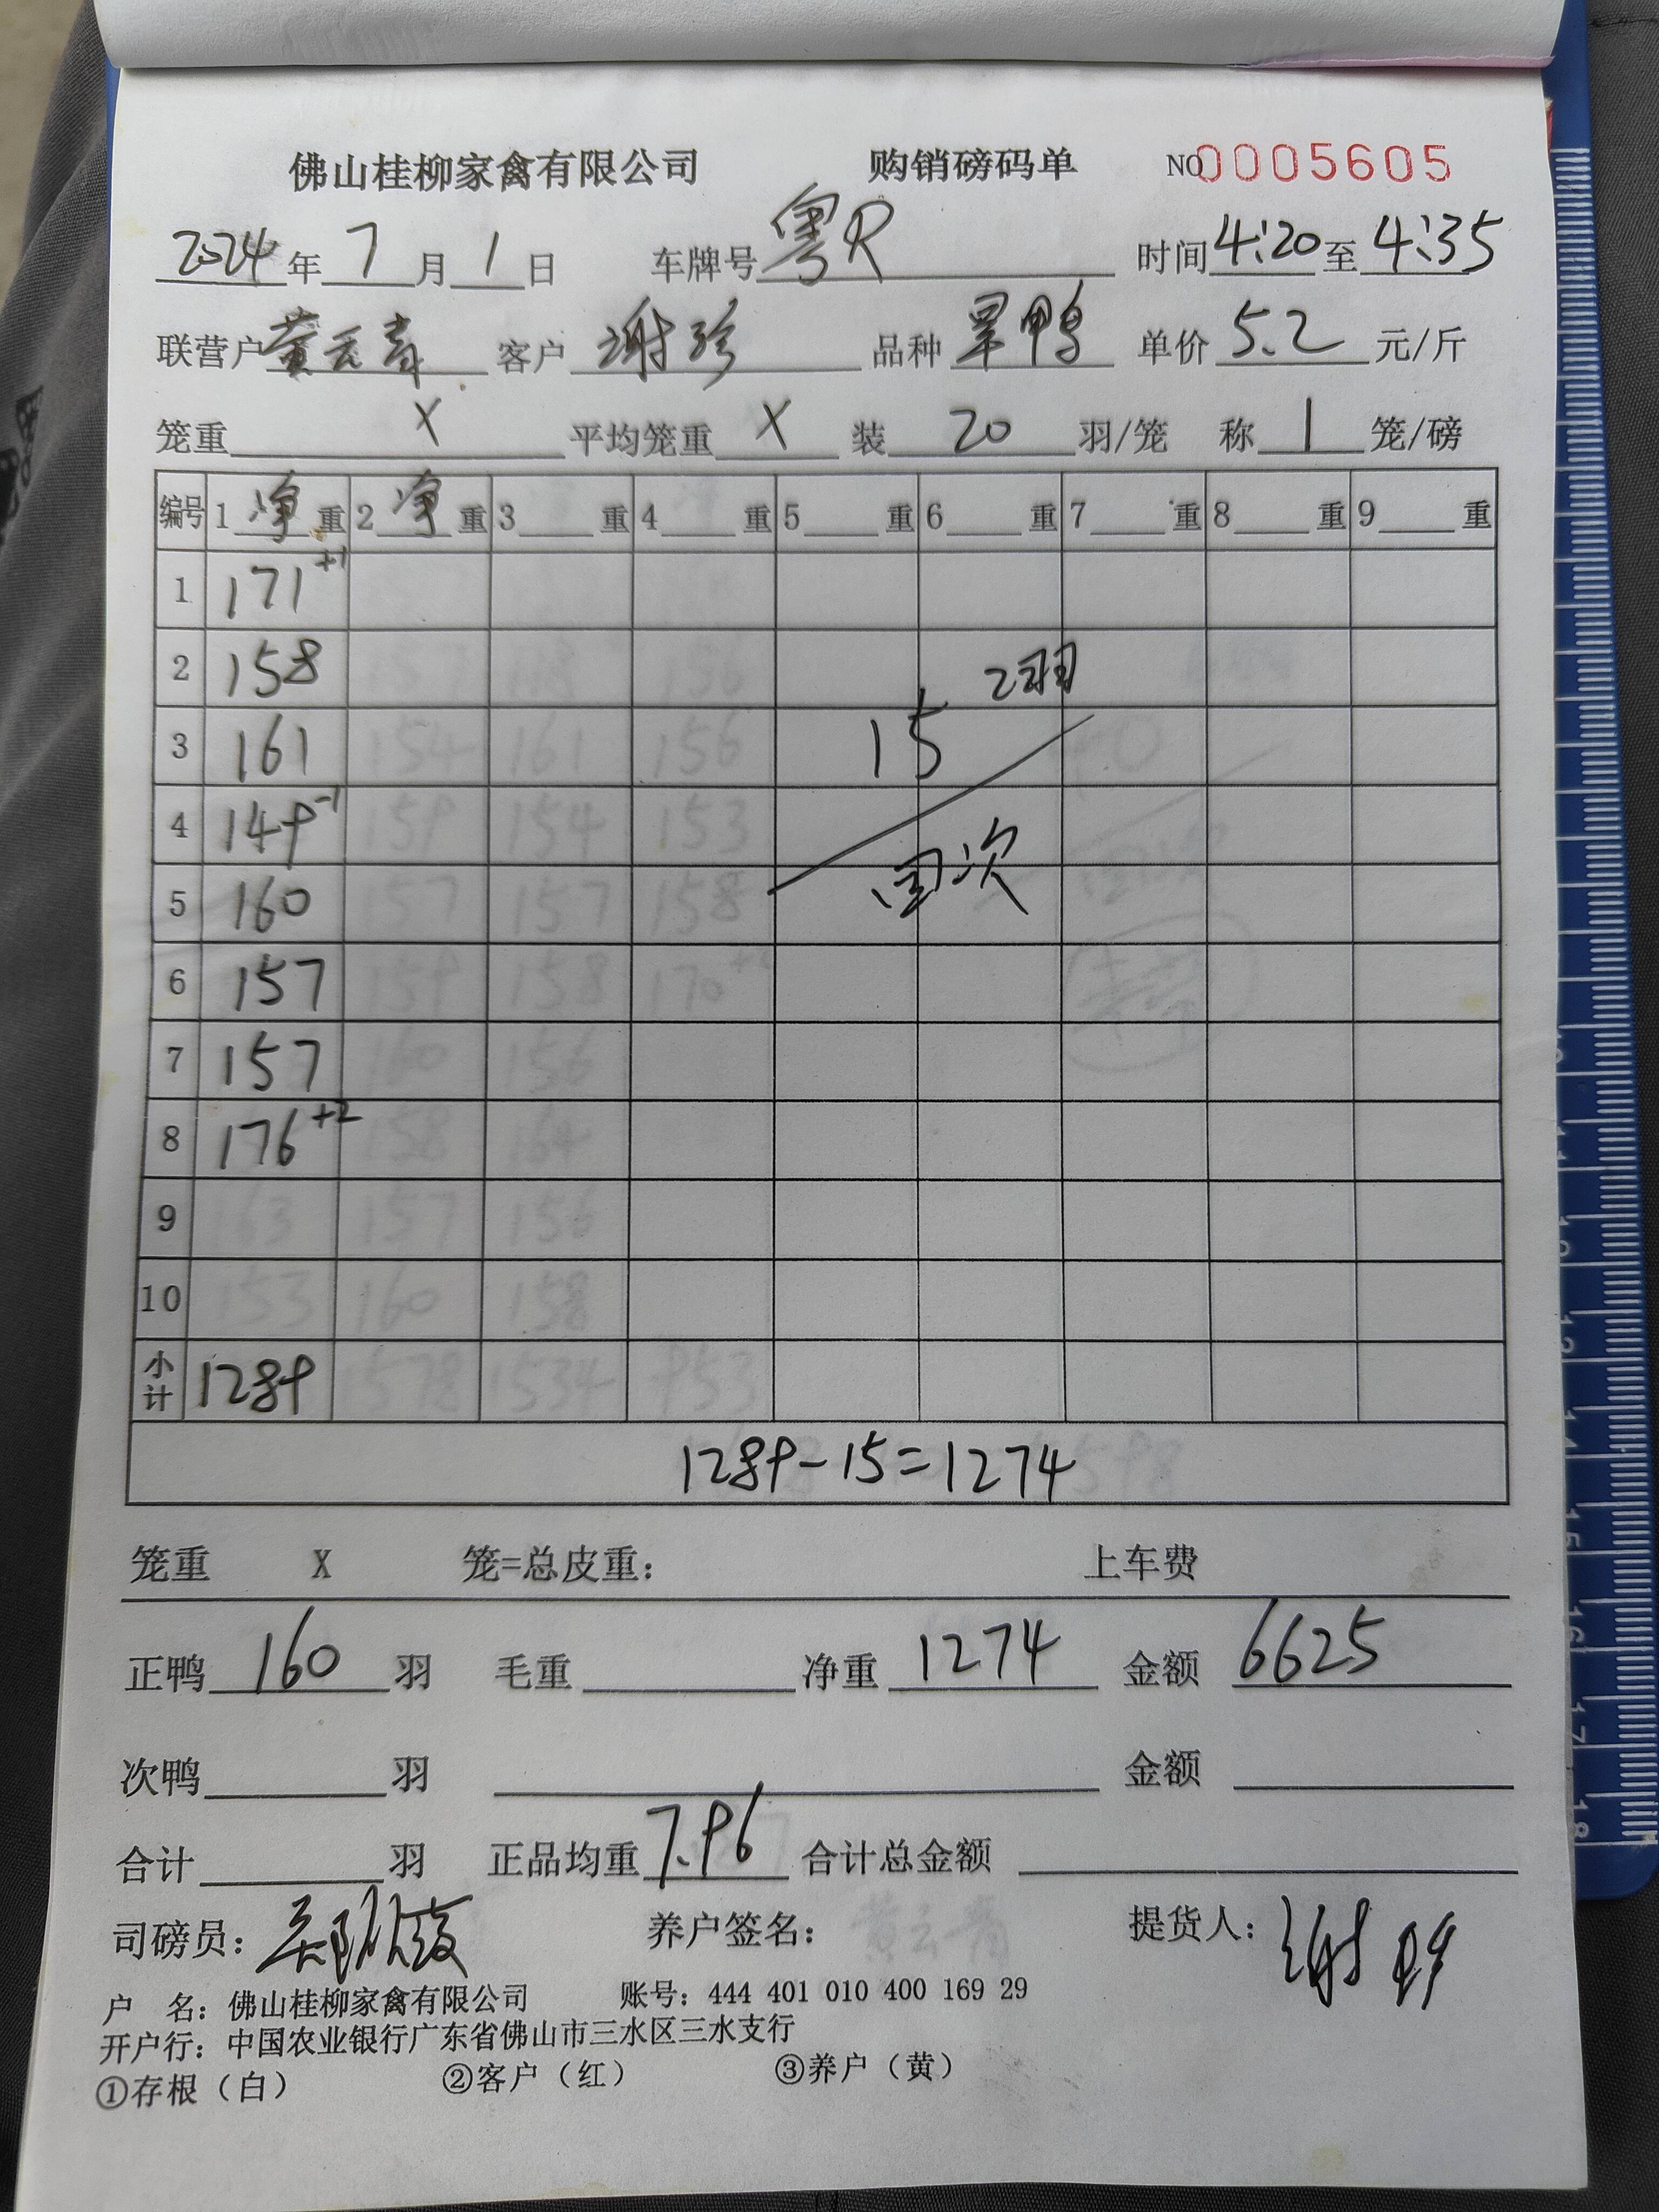 佛山桂柳家禽有限公司 购销磅码单 NO 0005605
2024年 7 月 1 日 车牌号 粤R 时间 4:20 至 4:35
联营户 黄云青 客户 谢珍 品种 旱鸭 单价 5.2 元/斤
笼重 X 平均笼重 X 装 20 羽/笼 称 1 笼/磅
编号 1 净 重 2 净 重 3 重 4 重 5 重 6 重 7 重 8 重 9 重
1 171 +1
2 158
2羽
3 161
15
4 149 -1
次
5 160
6 157
7 157
8 176 +2
9
10
小计 1289
1289-15=1274
笼重 X 笼=总皮重: 上车费
正鸭 160 羽 毛重 净重 1274 金额 6625
次鸭 羽 金额
合计 羽 正品均重 7.96 合计总金额
司磅员: 养户签名: 提货人: 谢珍
户 名: 佛山桂柳家禽有限公司 账号: 444 401 010 400 169 29
开户行: 中国农业银行广东省佛山市三水区三水支行
①存根（白） ②客户（红） ③养户（黄）